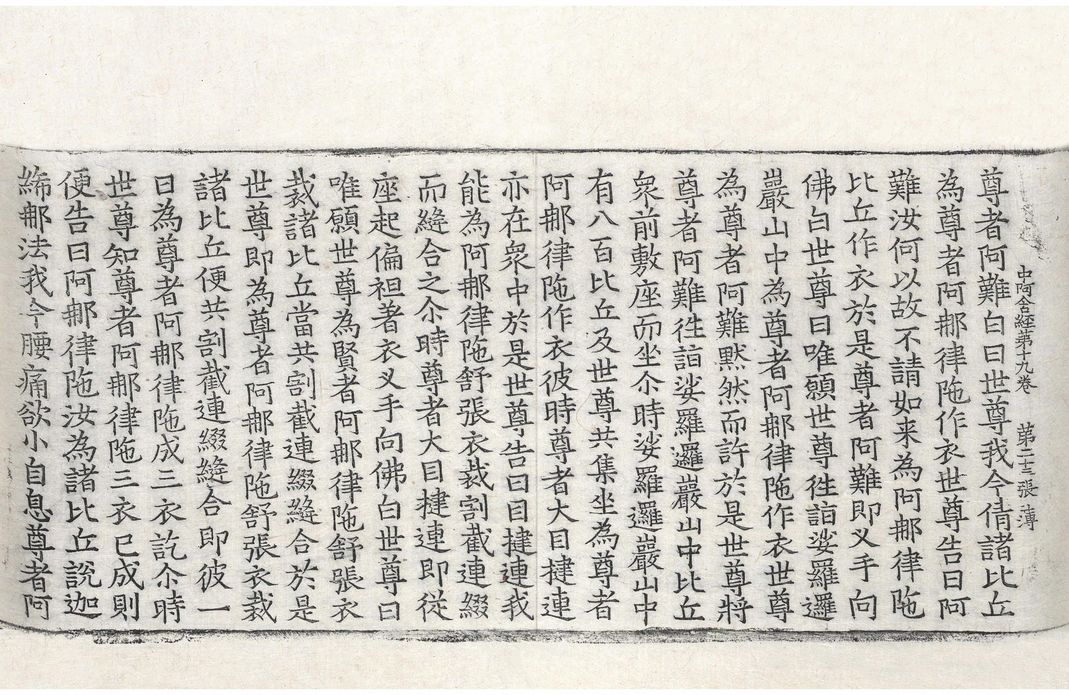 中阿含經第十九卷 第二三張 薄
尊者阿難白曰世尊我今倩諸比丘
為尊者阿那律陁作衣世尊告曰阿
難汝何以故不請如来為阿那律陁
比丘作衣於是尊者阿難即叉手向
佛白世尊曰唯願世尊徃詣娑羅邏
巖山中為尊者阿那律陁作衣世尊
為尊者阿難黙然而許於是世尊將
尊者阿難徃詣娑羅邏巖山中比丘
衆前敷座而坐尒時娑羅邏巖山中
有八百比丘及世尊共集坐為尊者
阿那律陁作衣彼時尊者大目揵連
亦在衆中於是世尊告曰目揵連我
能為阿那律陁舒張衣裁割截連綴
而縫合之尒時尊者大目揵連即從
座起偏袒著衣叉手向佛白世尊曰
唯願世尊為賢者阿那律陁舒張衣
裁諸比丘當共割截連綴縫合於是
世尊即為尊者阿那律陁舒張衣裁
諸比丘便共割截連綴縫合即彼一
日為尊者阿那律陁成三衣訖尒時
世尊知尊者阿那律陁三衣已成則
便告曰阿那律陁汝為諸比丘說迦
絺那法我今腰痛欲小自息尊者阿